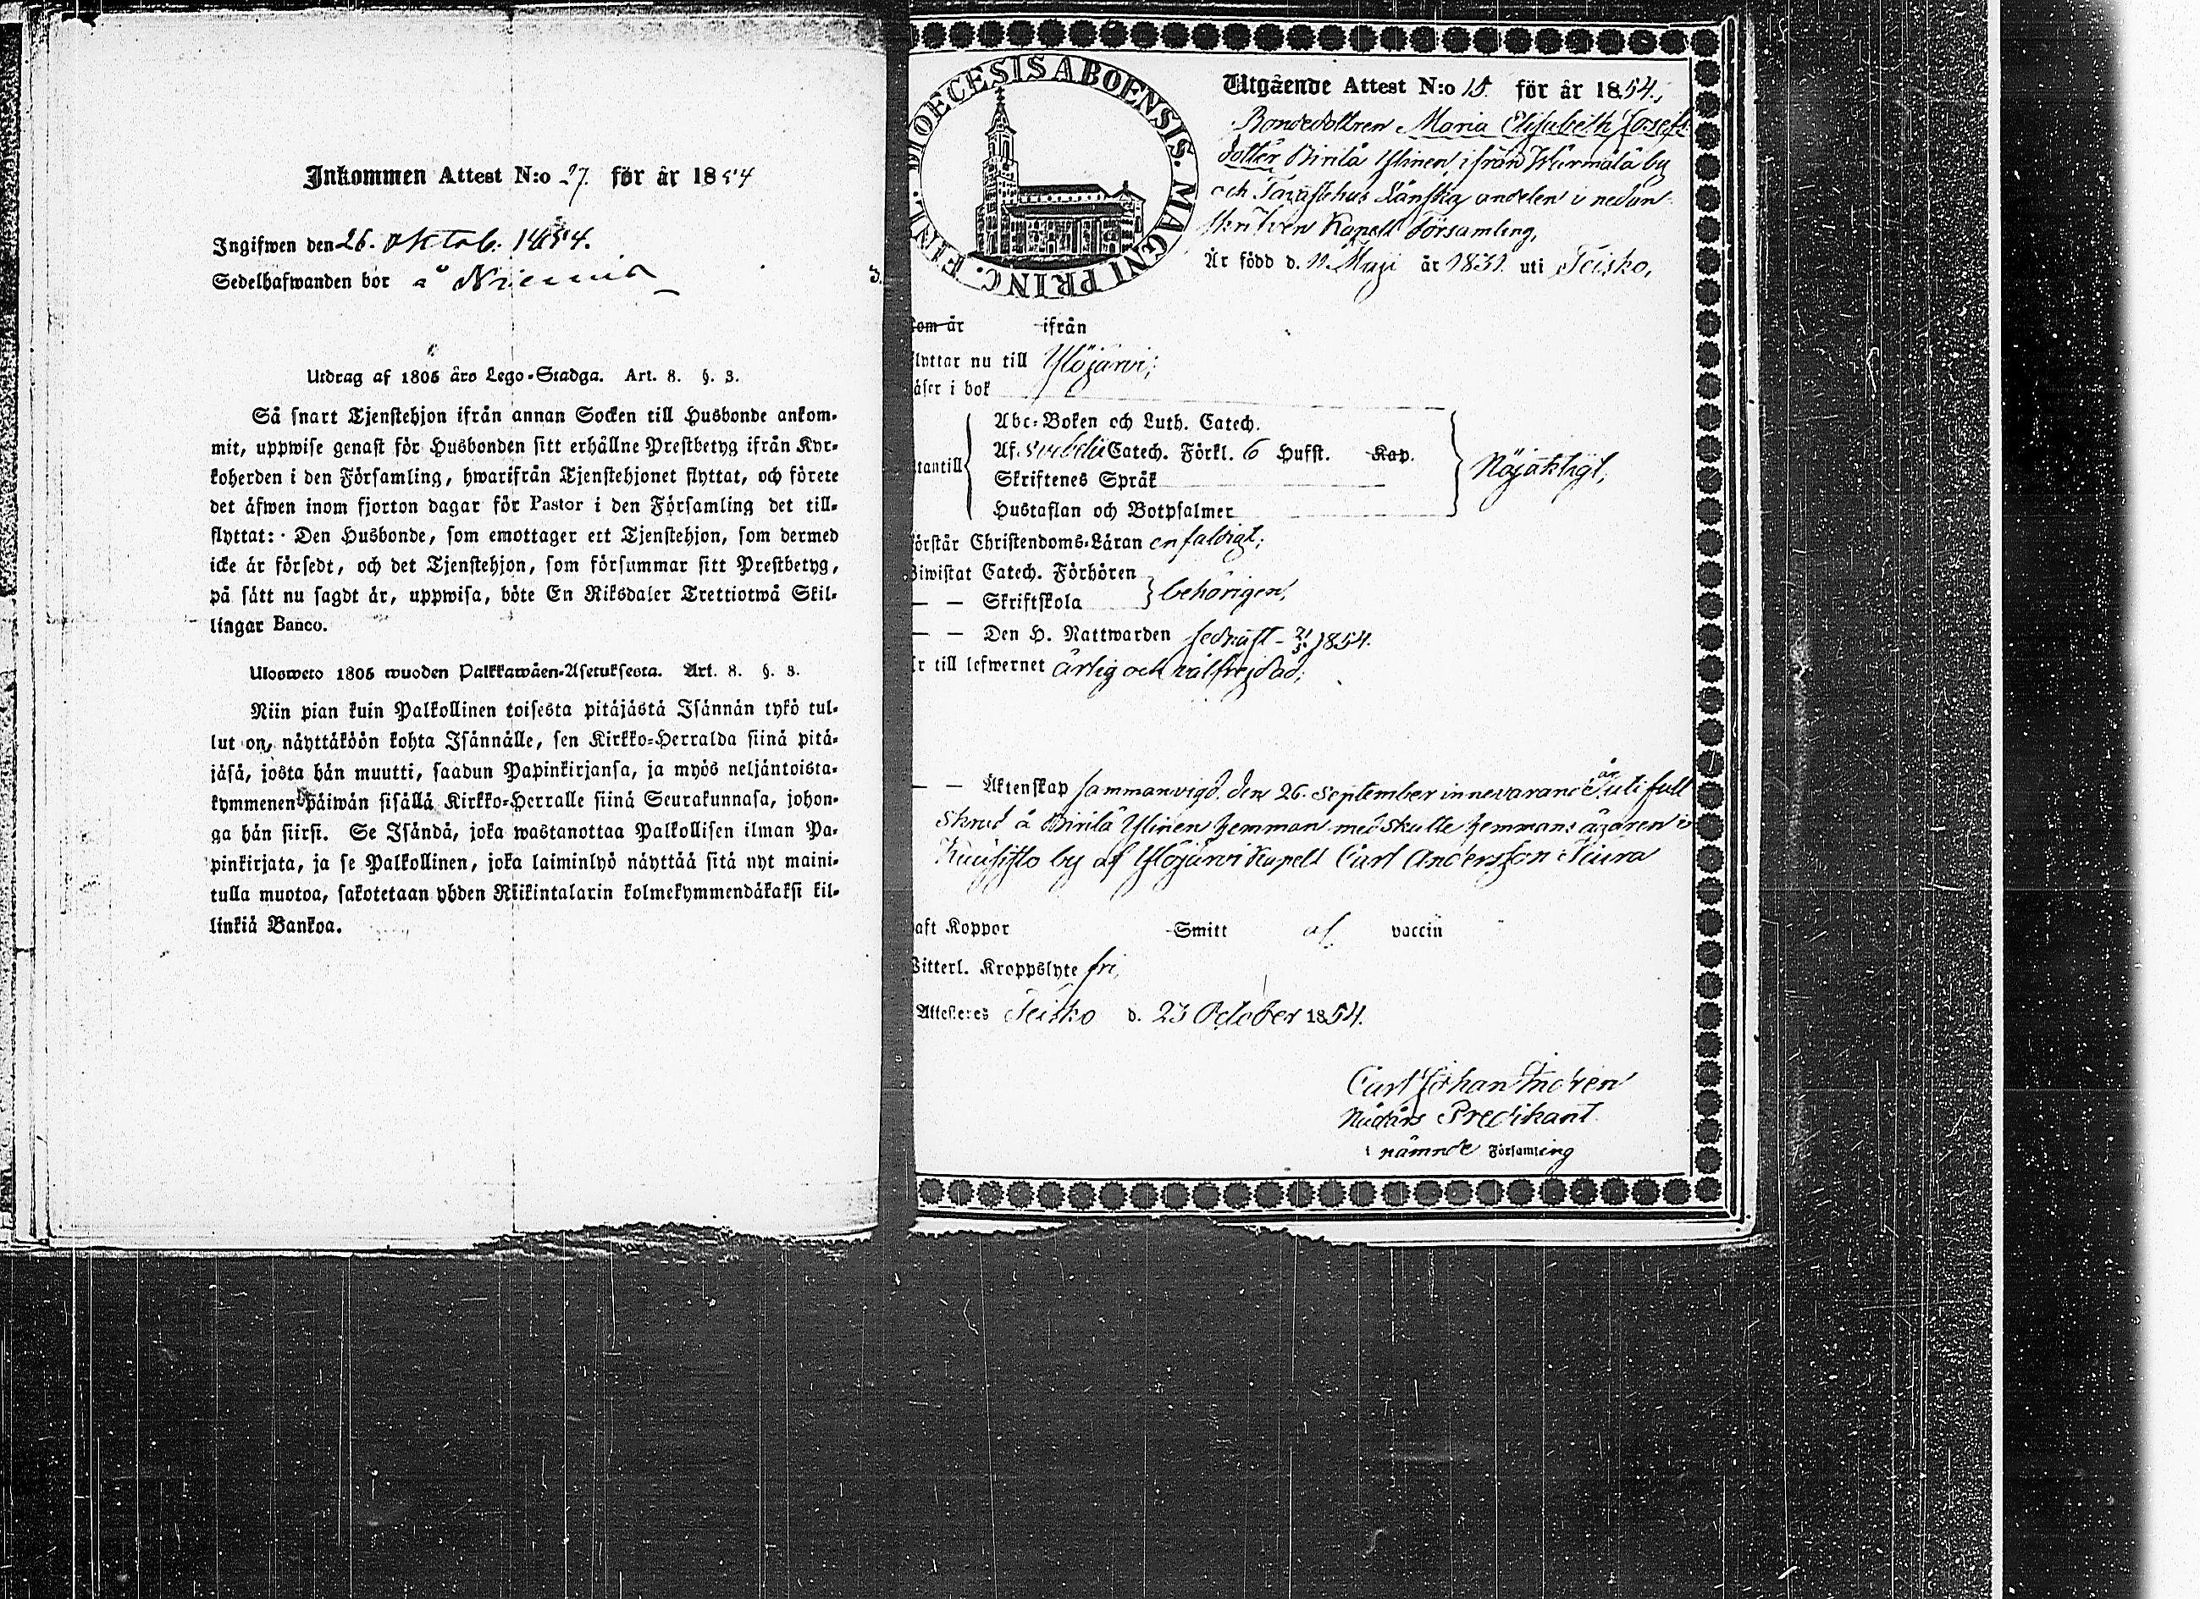 Inkommen Attest N:o 27. för år 1854
Ingifwen den 26. oktob. 1854.
Sedelhafwanden bor å Niemis
Utdrag af 1805 års Lego-Stadga. Art. 8. §. 3.
Så snart Tjenstehjon ifrån annan Socken till Husbonde ankom-
mit, uppwise genast för Husbonden sitt erhållne Prestbetyg ifrån Kyr-
koherden i den Församling, hwarifrån Tjenstehjonet flyttat, och förete
det äfwen inom fjorton dagar för Pastor i den Församling det till-
flyttat: Den Husbonde, som emottager ett Tjenstehjon, som dermed
icke är försedt, och det Tjenstehjon, som försummar sitt Prestbetyg,
på sätt nu sagdt är, uppwisa, böte En Riksdaler Trettiotwå Skil-
lingar Banco.
Ulosweto 1805 wuoden Palkkawäen-Asetuksesta. Art. 8. §. 3.
Niin pian kuin Palkollinen toisesta pitäjästä Isännän tykö tul-
lut on, näyttäköön kohta Isännälle, sen Kirkko-Herralda siinä pitä-
jäsä, josta hän muutti, saadun Papinkirjansa, ja myös neljäntoista-
kymmenen päiwän sisällä Kirkko-Herralle siinä Seurakunnasa, johon-
ga hän siirsi. Se Isändä, joka wastanottaa Palkollisen ilman Pa-
pinkirjata, ja se Palkollinen, joka laiminlyö näyttää sitä nyt maini-
tulla muotoa, sakotetaan yhden Riikintalarin kolmekymmendäkaksi kil-
linkiä Bankoa.
DIOECESIS ABOENSIS. MAGNI PRINC. FINL.
Utgående Attest N:o 15. för år 1854.
Bondedottren Maria Elisabeth Josefs
dotter Pirilä Ylinen, ifrån Wärmälä by
och Tavastehus Länska andelen i nedan-
skrifven Kapell Församling,
Är född d. 11 Maji år 1831. uti Teisko,
som är ifrån
flyttar nu till Ylöjärvi;
läser i bok
utantill
Abc-Boken och Luth. Catech.
Af Svebelii Catech. Förkl. 6 Hufst. Kap.
Skriftenes Språk
Hustaflan och Botpsalmer
Nöjaktligt;
förstår Christendoms-Läran enfaldigt;
Biwistat Catech. Förhören
— — Skriftskola
behörigen,
— — Den H. Nattwarden sednast 21/5 1854.
Är till lefwernet ärlig och välfrejdad;
— — Äktenskap sammanvigd den 26. September innevarande år uti full
skrud å Pirilä Ylinen hemman med Skatte hemmans ägaren i
Kuusisto by af Ylöjärvi Kapell Carl Andersson Kiura
haft Koppor Smitt af vaccin
Witterl. Kroppslyte fri,
Attesteres Teisko d. 23 October 1854.
Carl Johan Indren
Nådårs Predikant
i nämnde Församling